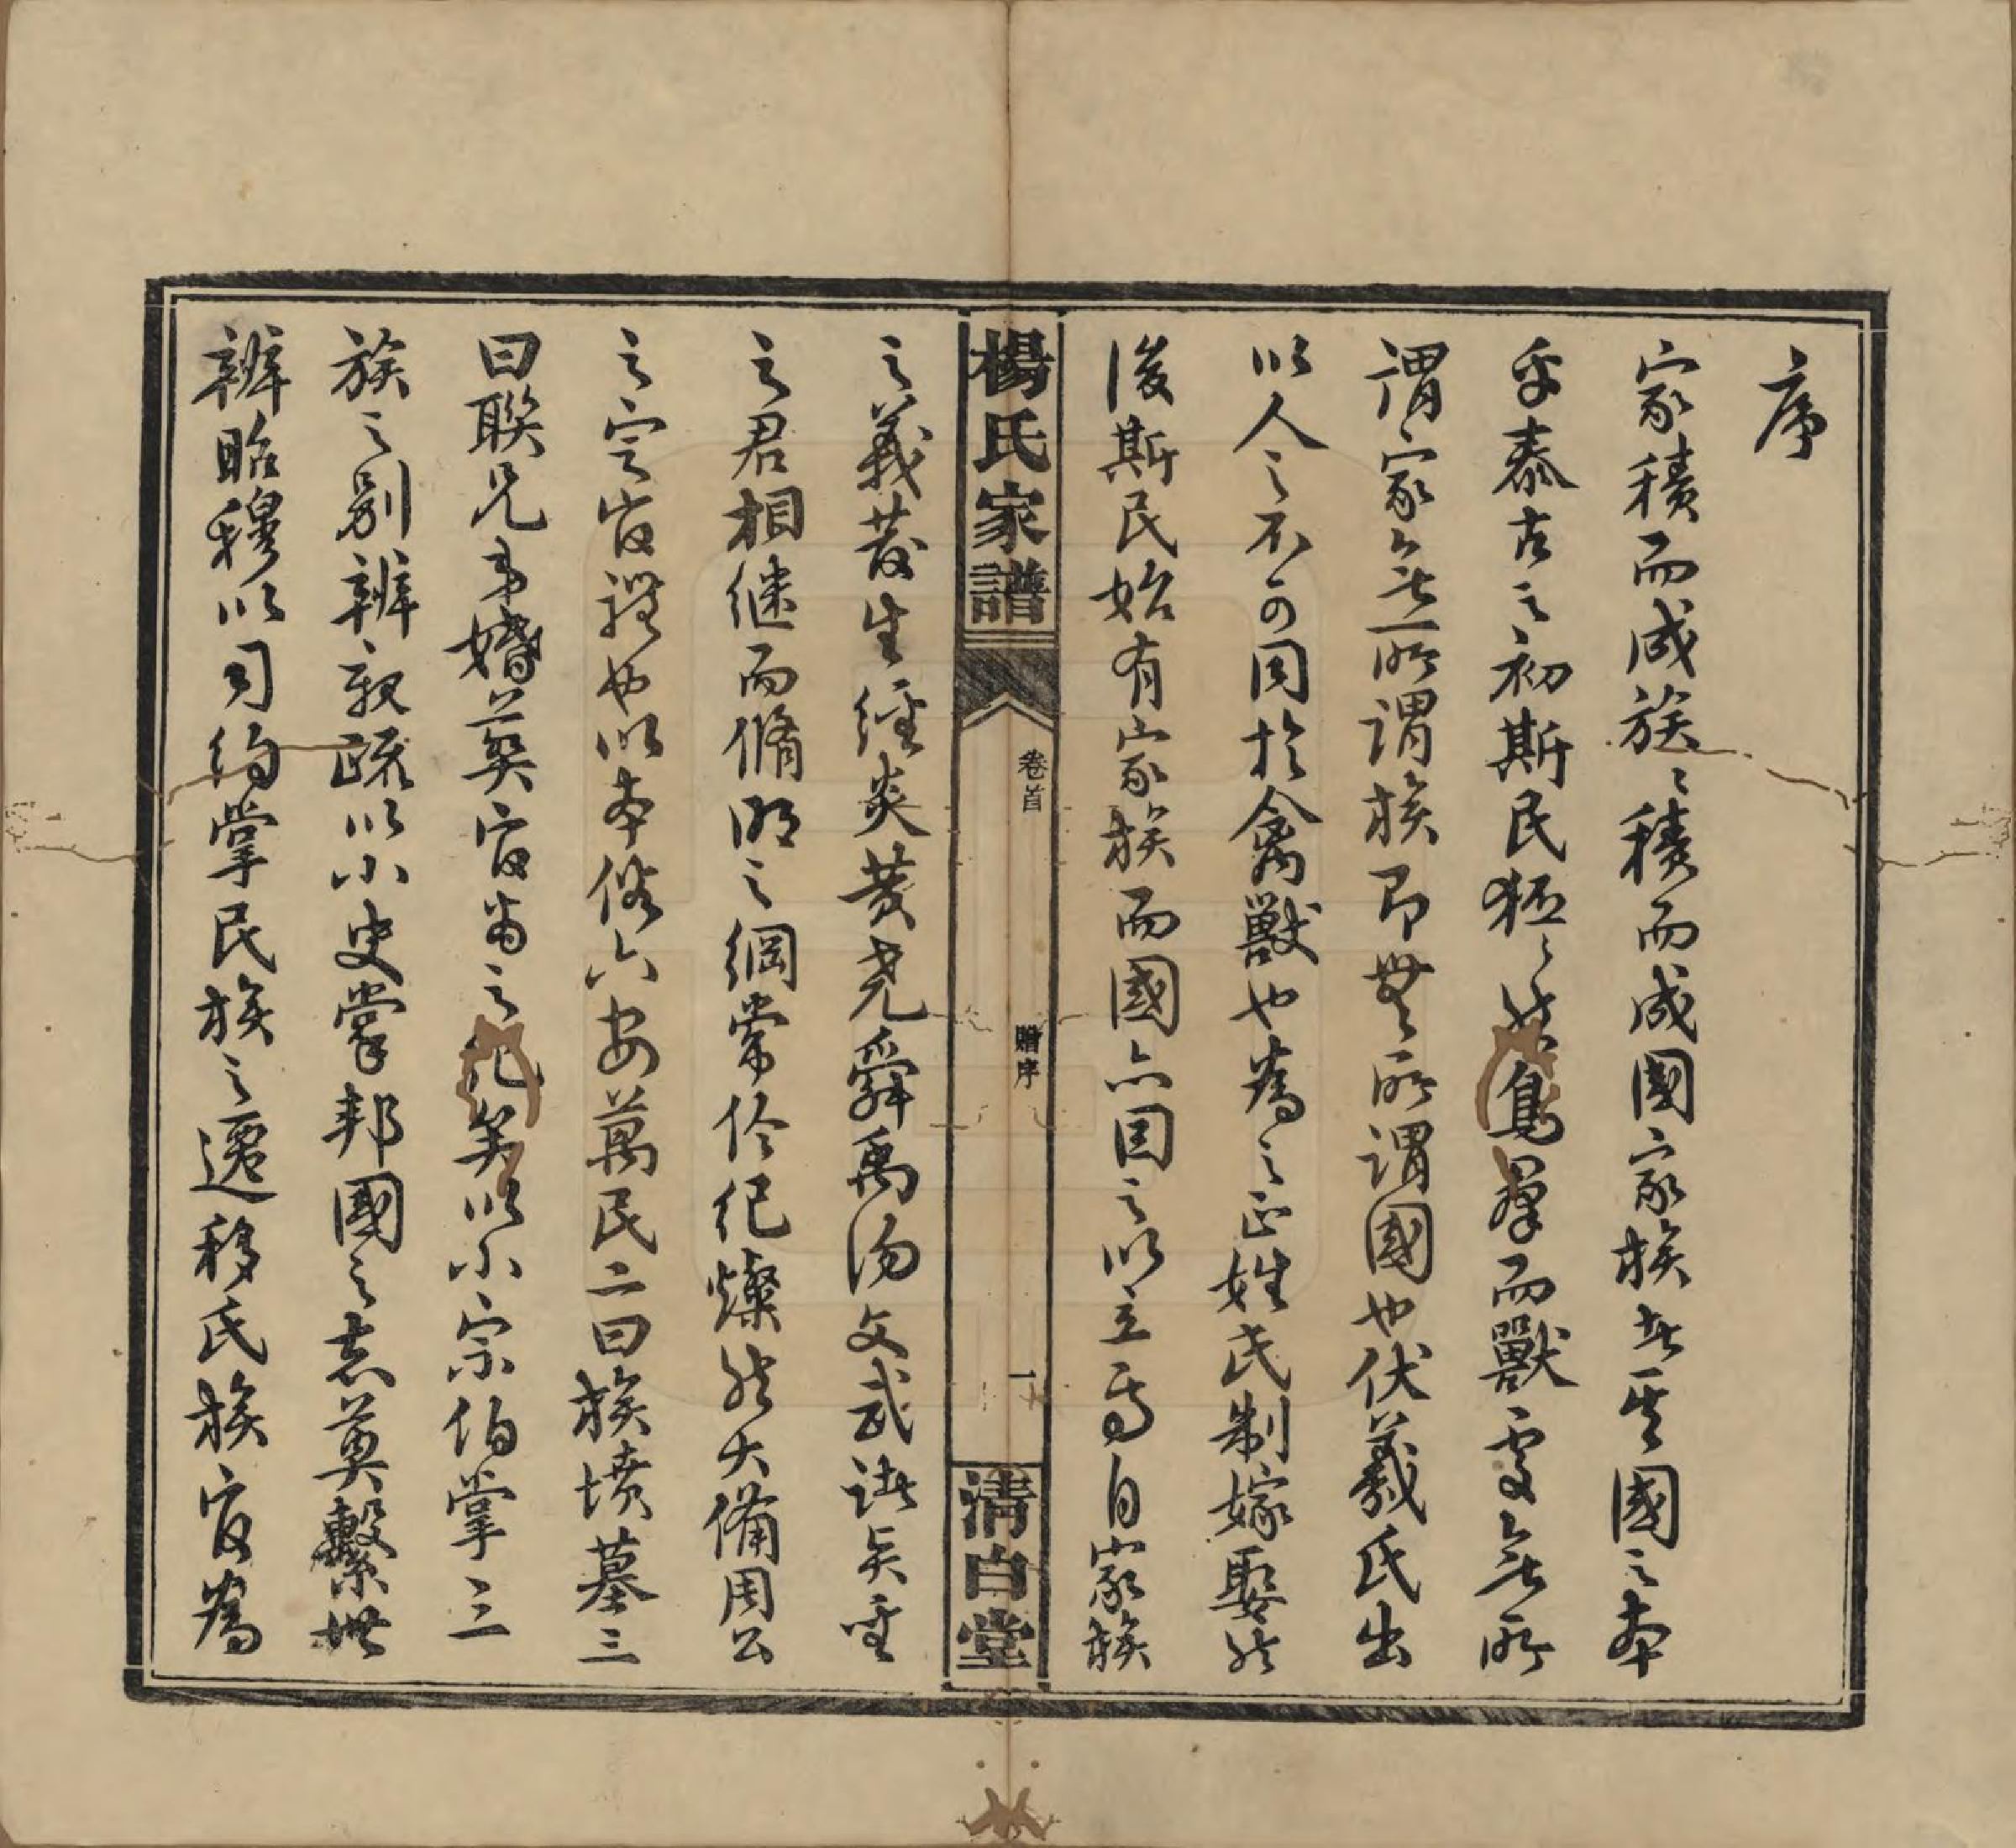 序
家積而成族〻積而成國家族者其國之本
乎泰古之初斯民狉〻然鳥羣而獸處無所
謂家無所謂族即無所謂國也伏羲氏出
以人之不可同於禽獸也為之正姓氏制嫁娶然
後斯民始有家族而國亦因之以立焉自家族
楊氏家譜
卷首
贈序
一
清白堂
之義發生經炎黃堯舜禹湯文武諸矢聖
之君相繼而脩明之綱常倫紀燦然大備周公
之定官禮也以本俗六安萬民二曰族墳墓三
曰聯兄弟婚葬官尚之矣以小宗伯掌三
族之別辨親疏以小史掌邦國之志奠繫世
辨昭穆以司約掌民族之遷移氏族官為